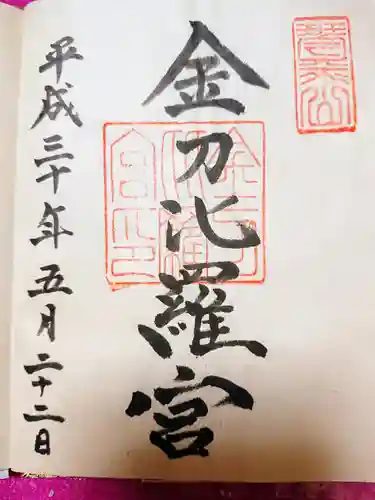 金刀比羅宮
平成三十年五月二十二日